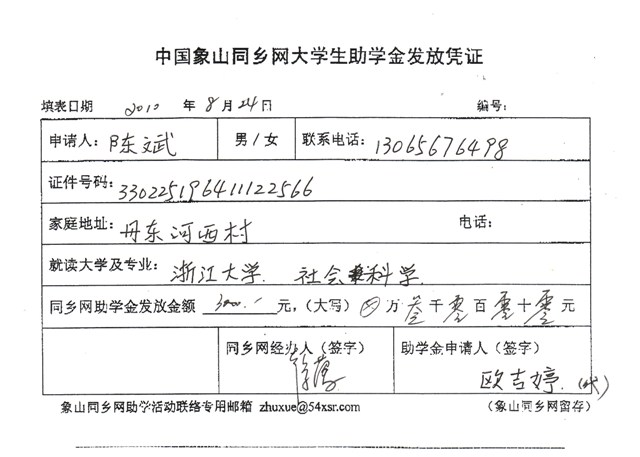 中国象山同乡网大学生助学金发放凭证
填表日期 2010 年 8 月 24 日 编号:
申请人: 陈文斌 男/女 联系电话: 13065676498
证件号码: 330225196411122566
家庭地址: 丹东河西村 电话:
就读大学及专业: 浙江大学 社会科学
同乡网助学金发放金额 3000.- 元,(大写) ⊗ 万 叁 千 零 百 零 十 零 元
同乡网经办人(签字) 助学金申请人(签字)
欧吉婷.(代)
象山同乡网助学活动联络专用邮箱 zhuxue@54xsr.com (象山同乡网留存)